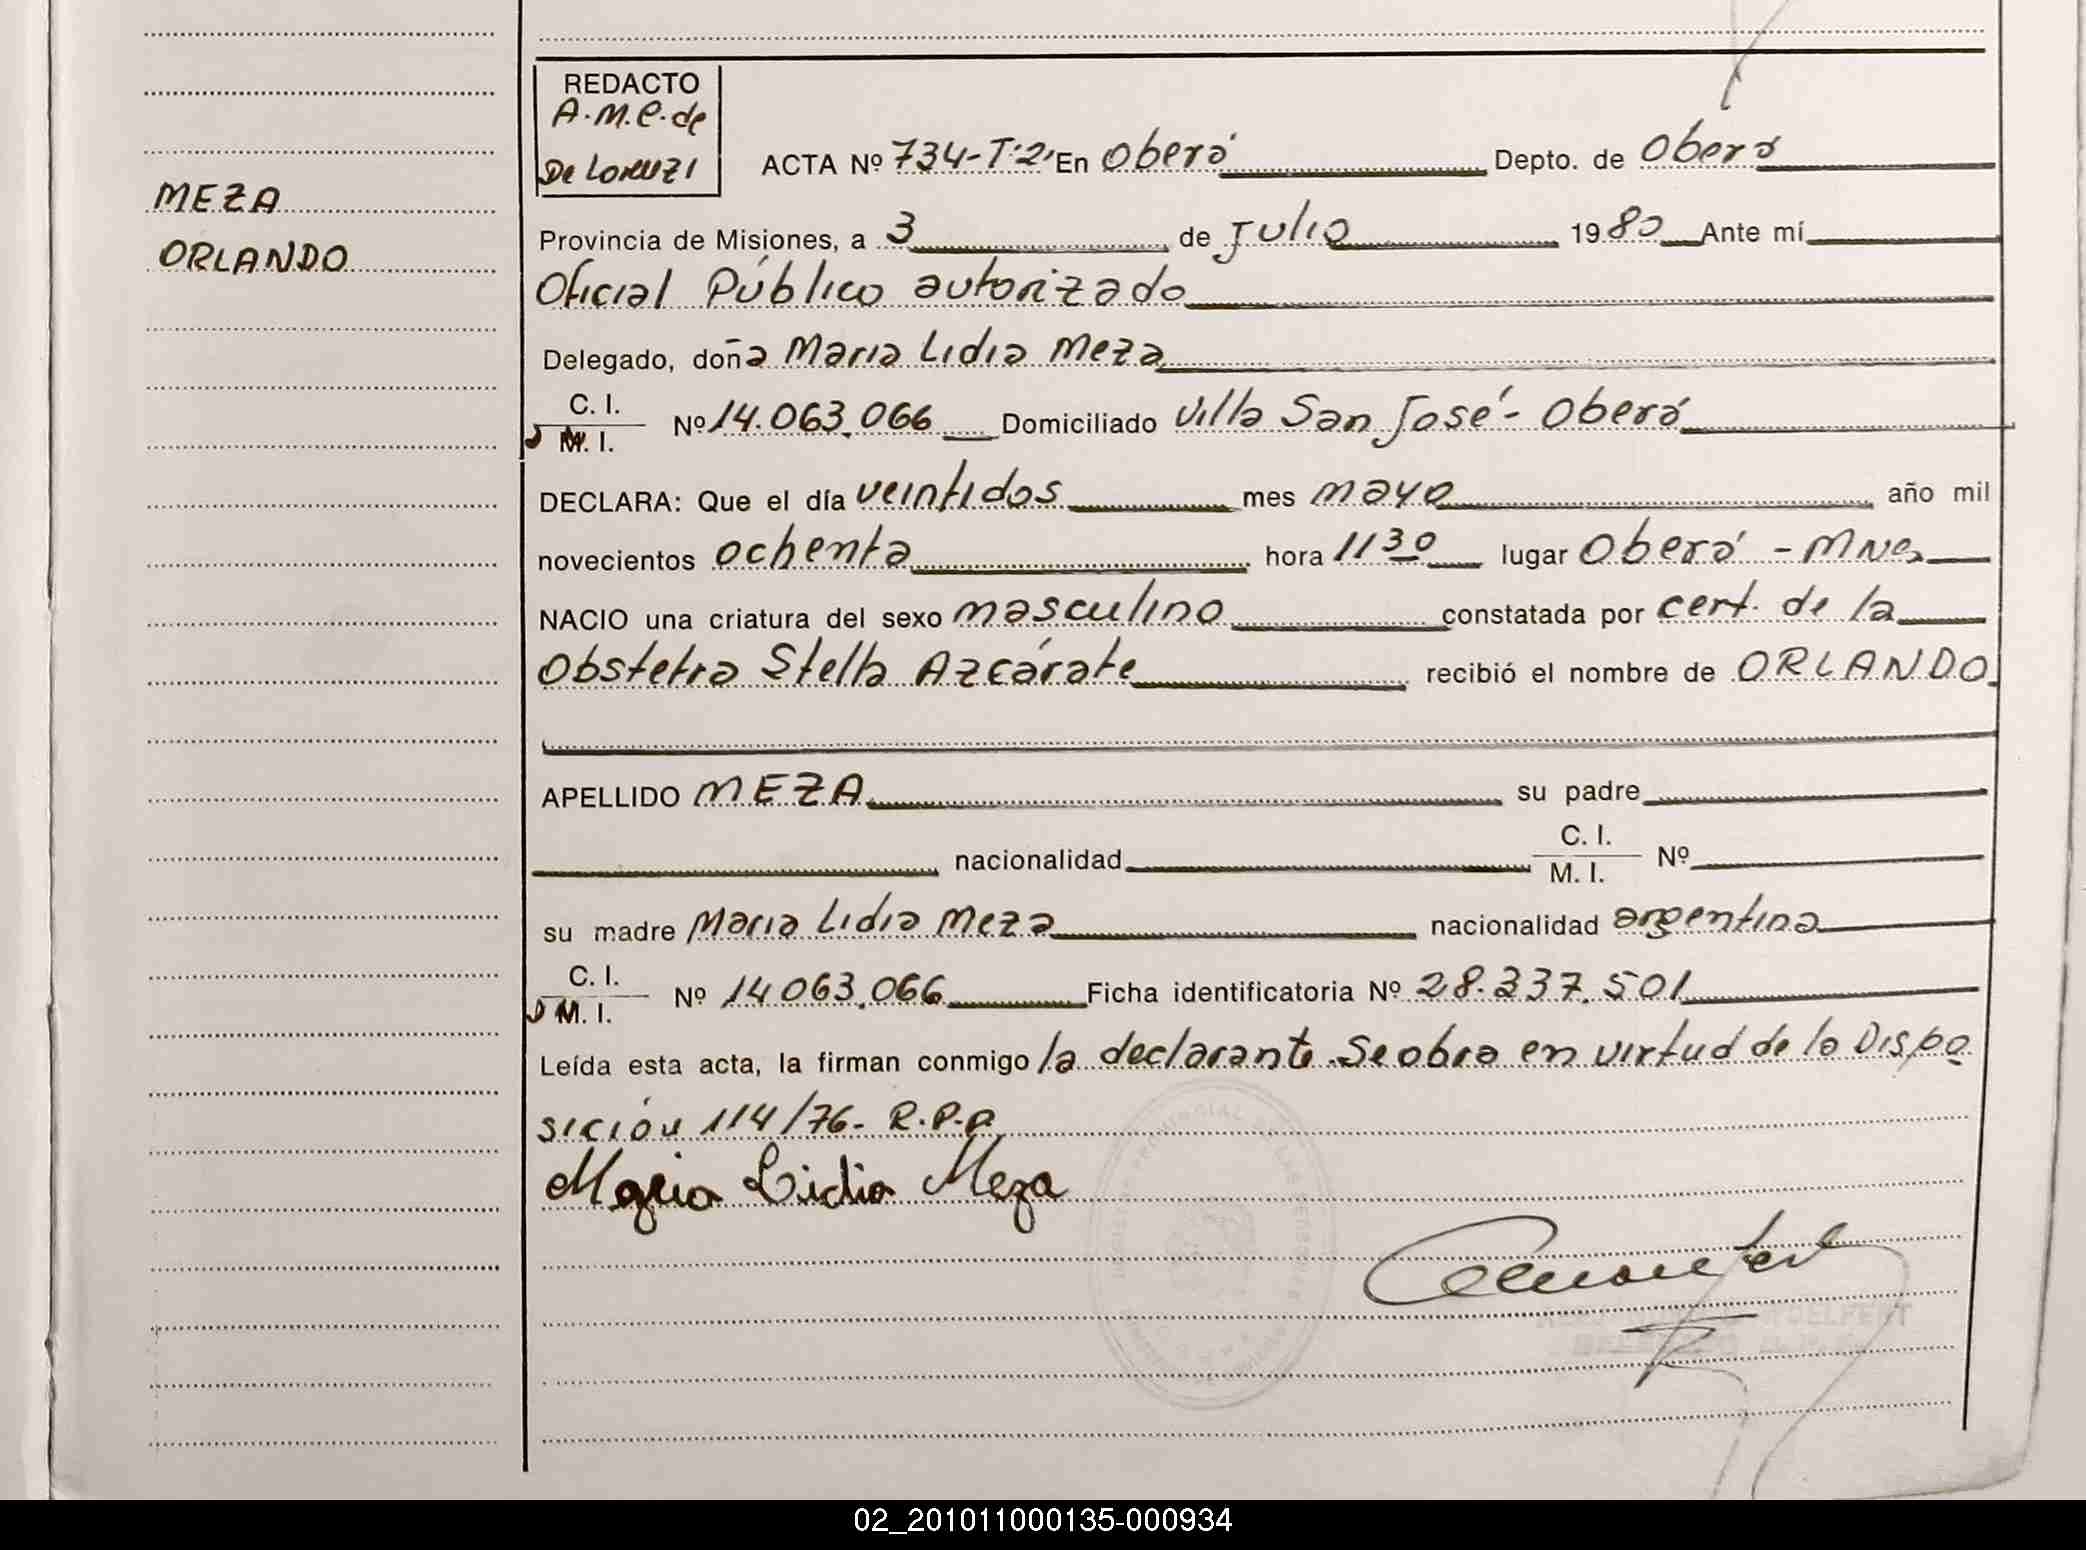 REDACTO
A.M.C. de
De Lorenzi
MEZA
ORLANDO
ACTA Nº 734-T:2' En Oberá Depto. de Oberá
Provincia de Misiones, a 3 de Julio 1980 Ante mí
Oficial Público autorizado
Delegado, doña Maria Lidia Meza
C. I.
M. I. Nº 14.063.066 Domiciliado Villa San José - Oberá
DECLARA: Que el día veintidos mes mayo año mil
novecientos ochenta hora 11 30 lugar Oberá - Mnes
NACIO una criatura del sexo masculino constatada por cert. de la
Obstetra Stella Azcárate recibió el nombre de ORLANDO
APELLIDO MEZA su padre
nacionalidad C. I. M. I. Nº
su madre Maria Lidia Meza nacionalidad argentina
C. I.
M. I. Nº 14.063.066 Ficha identificatoria Nº 28.337.501
Leída esta acta, la firman conmigo la declarante. Se obra en virtud de la Dispo
sición 114/76- R.P.P
Maria Lidia Meza
02_201011000135-000934